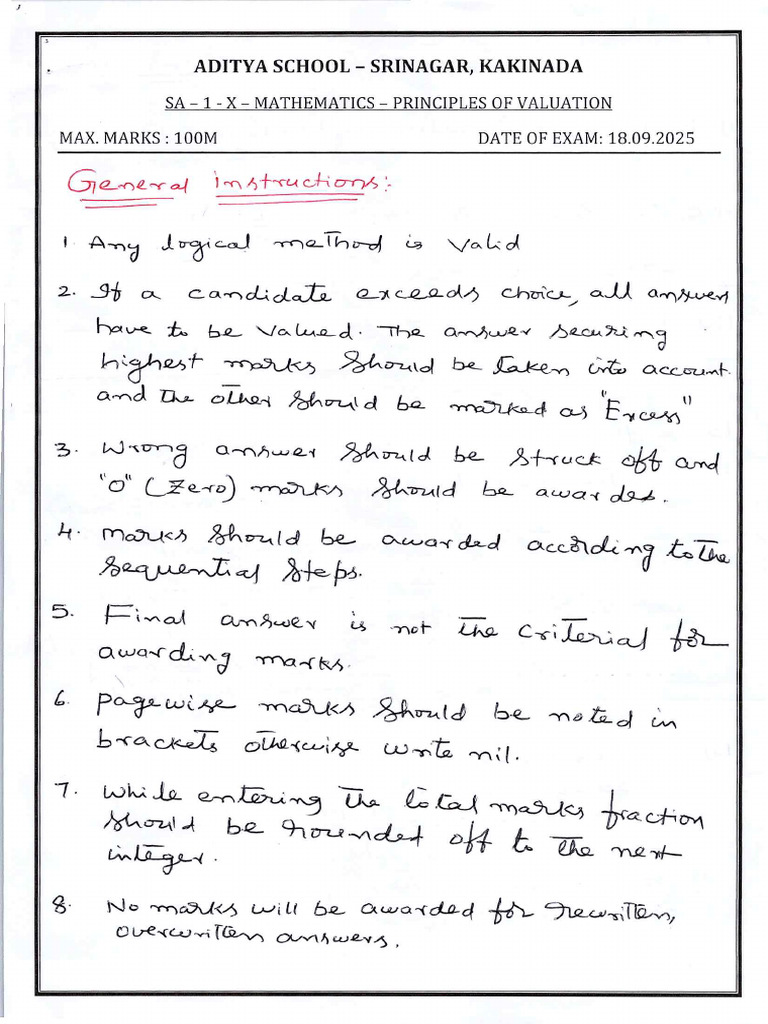 ADITYA SCHOOL – SRINAGAR, KAKINADA
SA – 1 - X – MATHEMATICS – PRINCIPLES OF VALUATION
MAX. MARKS : 100M DATE OF EXAM: 18.09.2025
General instructions:
1. Any logical method is Valid
2. If a candidate exceeds choice, all answers
have to be Valued. The answer securing
highest marks should be taken into account.
and the other should be marked as "Excess"
3. Wrong answer should be struck off and
"0" (Zero) marks should be awarded.
4. marks should be awarded according to the
sequential steps.
5. Final answer is not the criterial for
awarding marks.
6. pagewise marks should be noted in
brackets otherwise write nil.
7. While entering the total marks fraction
should be rounded off to the next
integer.
8. No marks will be awarded for rewritten,
overwritten answers.